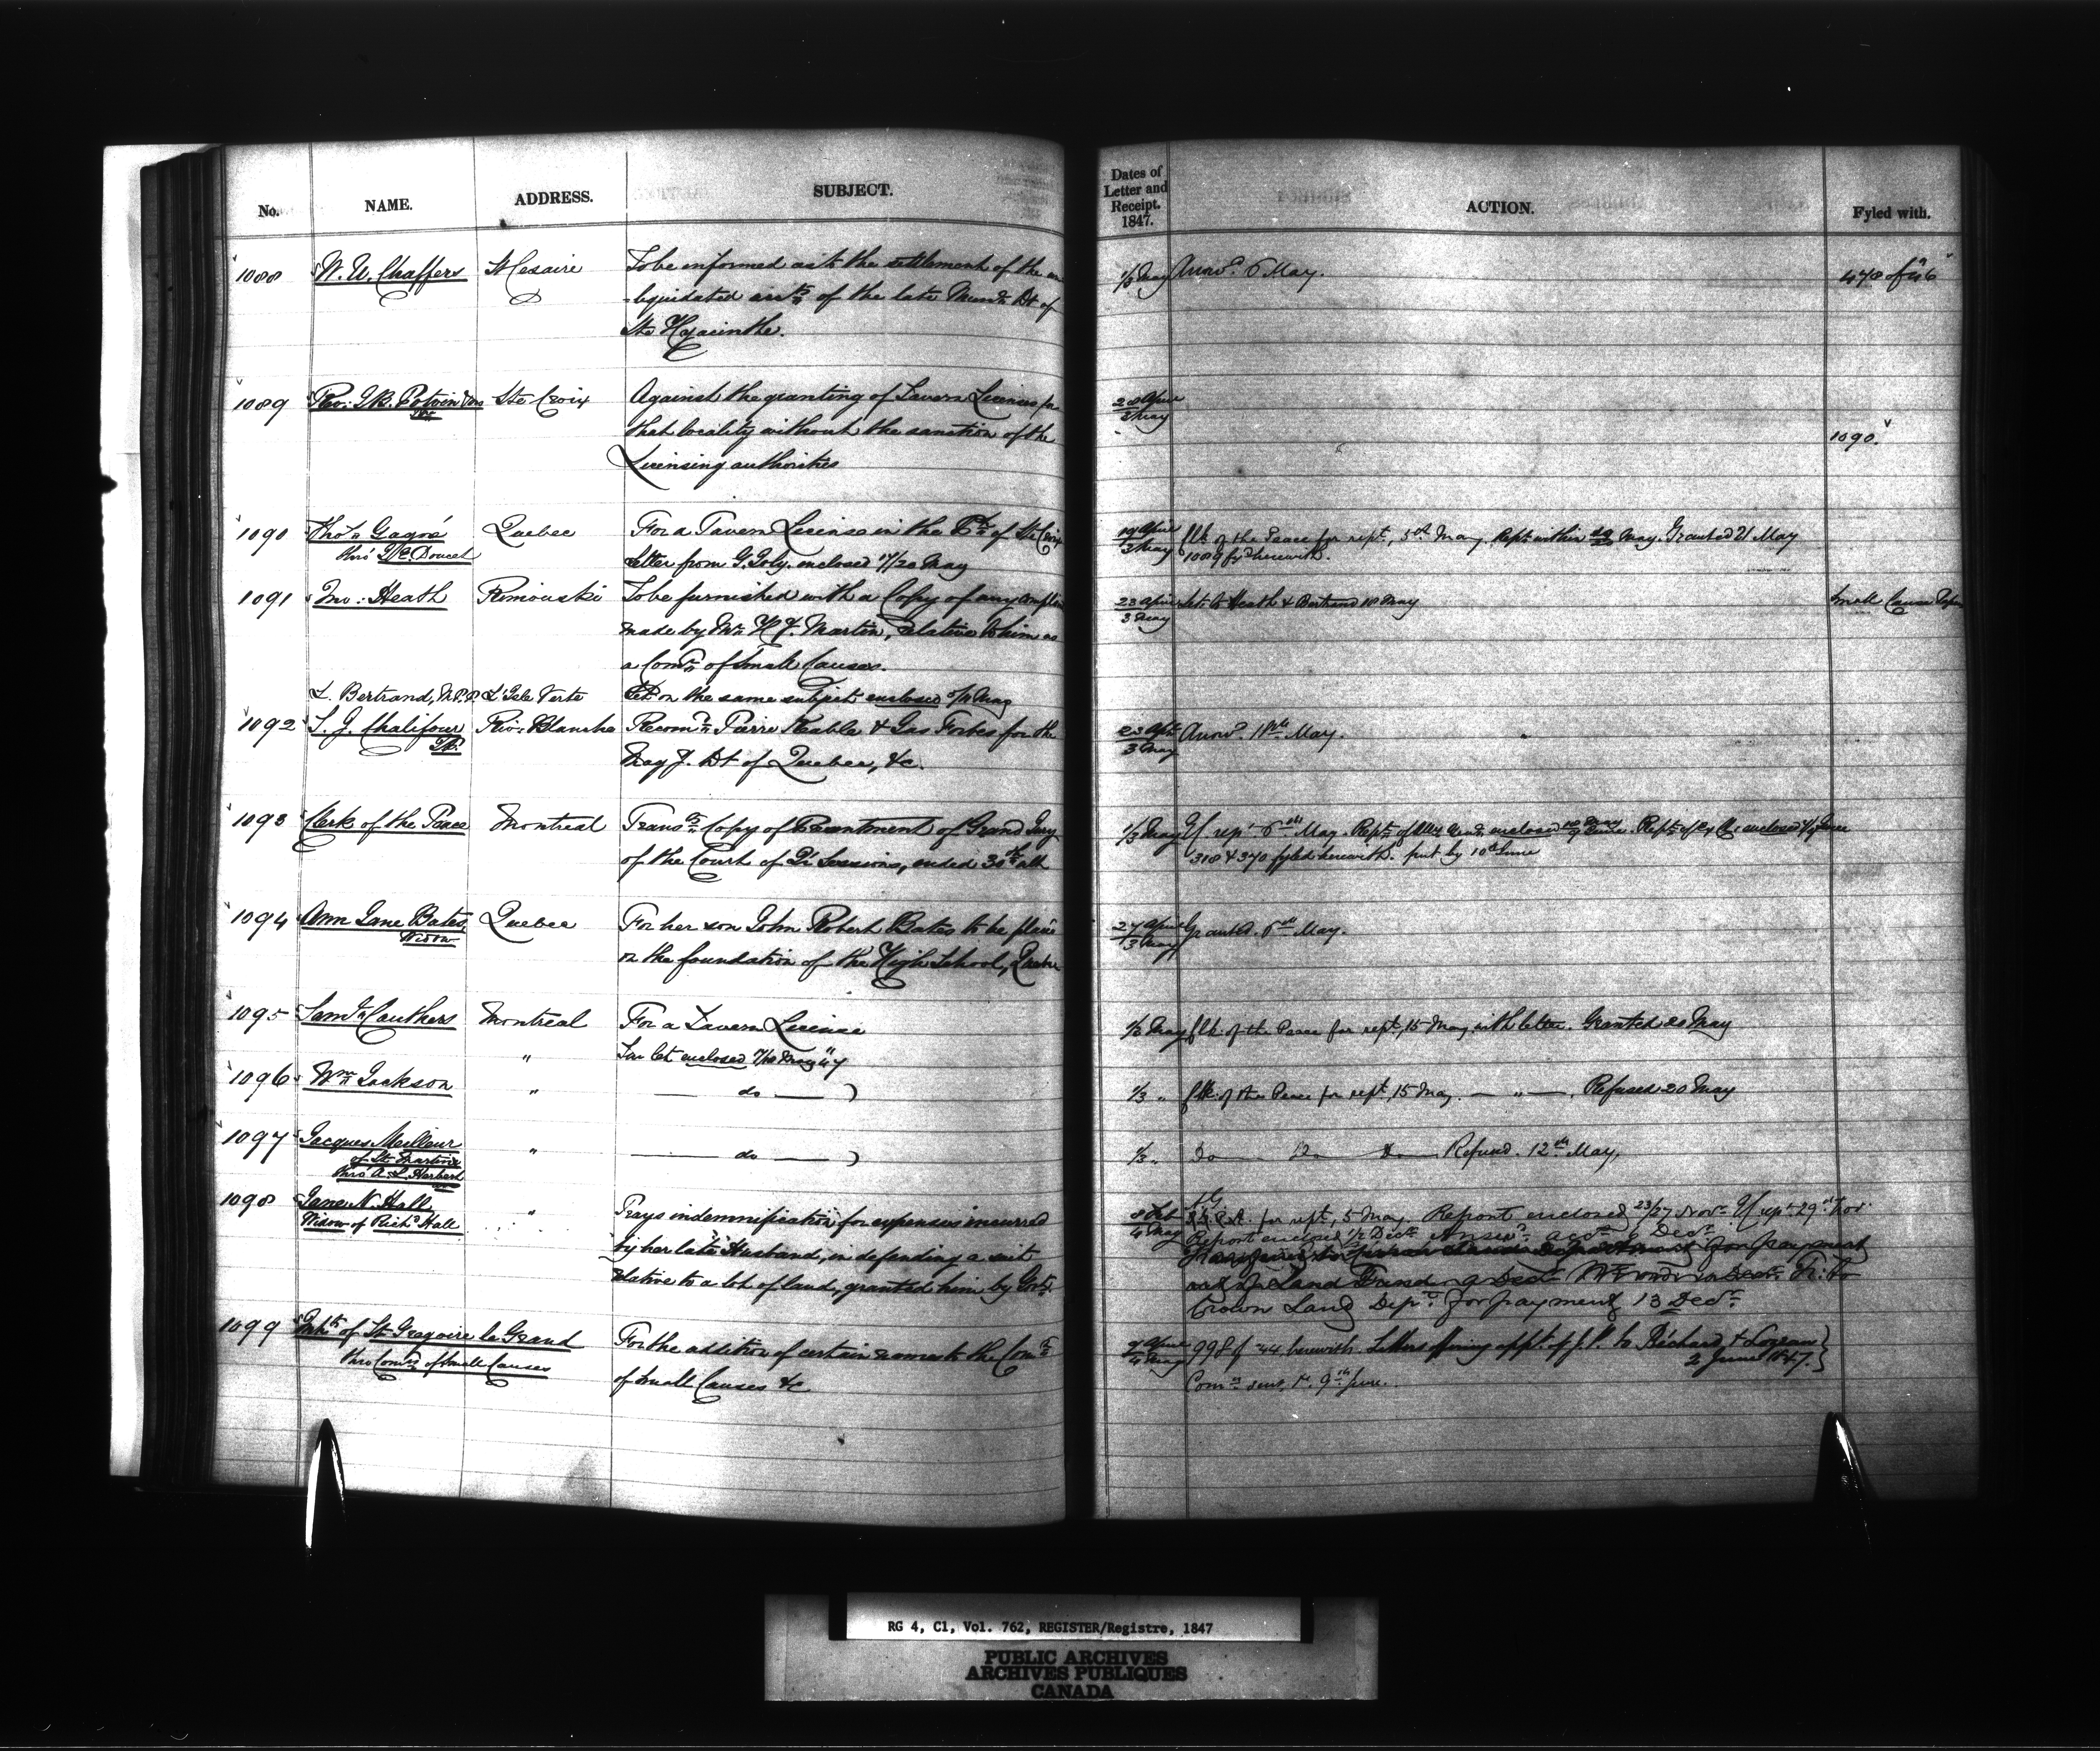 No. NAME. ADDRESS. SUBJECT.
1088 W. U. Chaffers St Cesaire To be informed as to the settlement of the un
liquidated accts of the late Munn Dt of
Ste Hyacinthe.
1089 Rev: J.B. Potvin Ste Croix Against the granting of Tavern Licenses for
that locality without the sanction of the
Licensing authorities
1090 Thos Gagné Quebec For a Tavern License in the Ph of Ste Croix
thro' Doucet Letter from G. Joly enclosed 17/20 May
1091 Jno: Heath Rimouski To be furnished with a Copy of any complts
made by Mr H. J. Martin, relative to him as
a Comr of Small Causes.
L. Bertrand, M.P.P. L'Isle Verte Let. on the same subject enclosed May
1092 L. J. Chalifour Riv: Blanche Recomn Pierre Rable & Gas Forbes for the
JP. Mag J. Dt of Quebec, &c.
1093 Clerk of the Peace Montreal Transg Copy of Presentment of Grand Jury
of the Court of Qr Sessions, ended 30th ult
1094 Ann Jane Bates, Quebec For her son John Robert Bates to be placed
Widow on the foundation of the High School, Quebec
1095 Saml Cauthers Montreal For a Tavern License
" Tav let. enclosed 7/10 May 47
1096 Wm Jackson " — do — )
1097 Jacques Meilleur " — do — )
of St. Martine
thro' A. L. Harbeson
1098 Jane N. Hall " Prays indemnification for expenses incurred
Widow of Richd Hall by her late Husband, in defending a suit
relative to a lot of land, granted him by Govt.
1099 Inhts of St Gregoire le Grand For the addition of certain names to the Comn
thro Comrs of Small Causes of Small Causes &c
Dates of
Letter and
Receipt.
1847. ACTION. Fyled with.
1/3 May Answd 6 May. 478 of 46
28 April
3 May
1090.
19 April
3 May Clk of the Peace for rept, 5th May. Rept. within 20 May. Granted 21 May
1089 fyd herewith.
23 April
3 May Let. to Heath & Bertrand 18 May Small Cause
23 Apl
3 May Answd 11th May.
1/3 May Cf rept 6th May. Rept of Atty Genl enclosed
318 & 370 fyled herewith. put by 10th June
27 April
3 May Granted. 6th May.
1/3 May Clk. of the Peace for rept, 15 May, with letter. Granted 20 May
1/3 " Clk. of the Peace for rept, 15 May. — " —. Refused 20 May
1/3 " Do — Do — Do — Refused. 12th May,
8 Feb
4 May for rept, 5 May. Report enclosed 23/27 Novr. Cf rept 29th Nov.
Report enclosed 1/2 Decr. Answd accdy 6 Decr.
for payment
out of Land Fund 9 Decr.
Crown Land Dept. for payment 13 Decr.
4 May 998 of 44 herewith. Letters offering appt. of J.P. to Richard & Lozeau
2 June 1847.
Comn sent, 9th June.
RG 4, C1, Vol. 762, REGISTER/Registre, 1847
PUBLIC ARCHIVES
ARCHIVES PUBLIQUES
CANADA